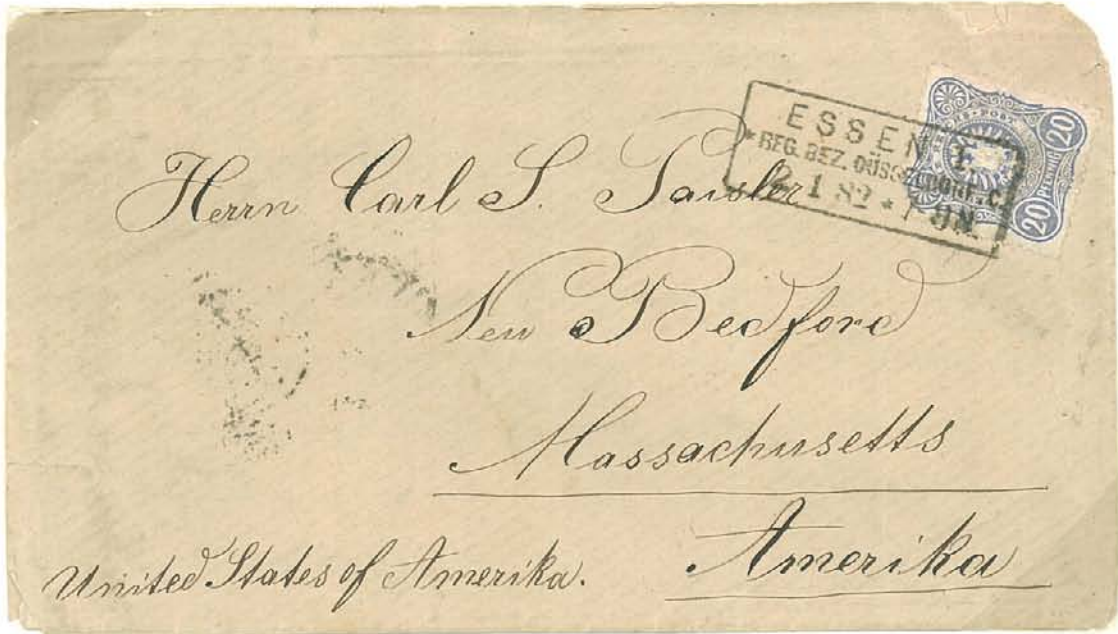 ESSEN. 1.
* REG. BEZ. DÜSSELDORF. c.
1 82 *
20 PFENNIG 20
Herrn Carl S.
New Bedford
Massachusetts
Amerika
United States of Amerika.